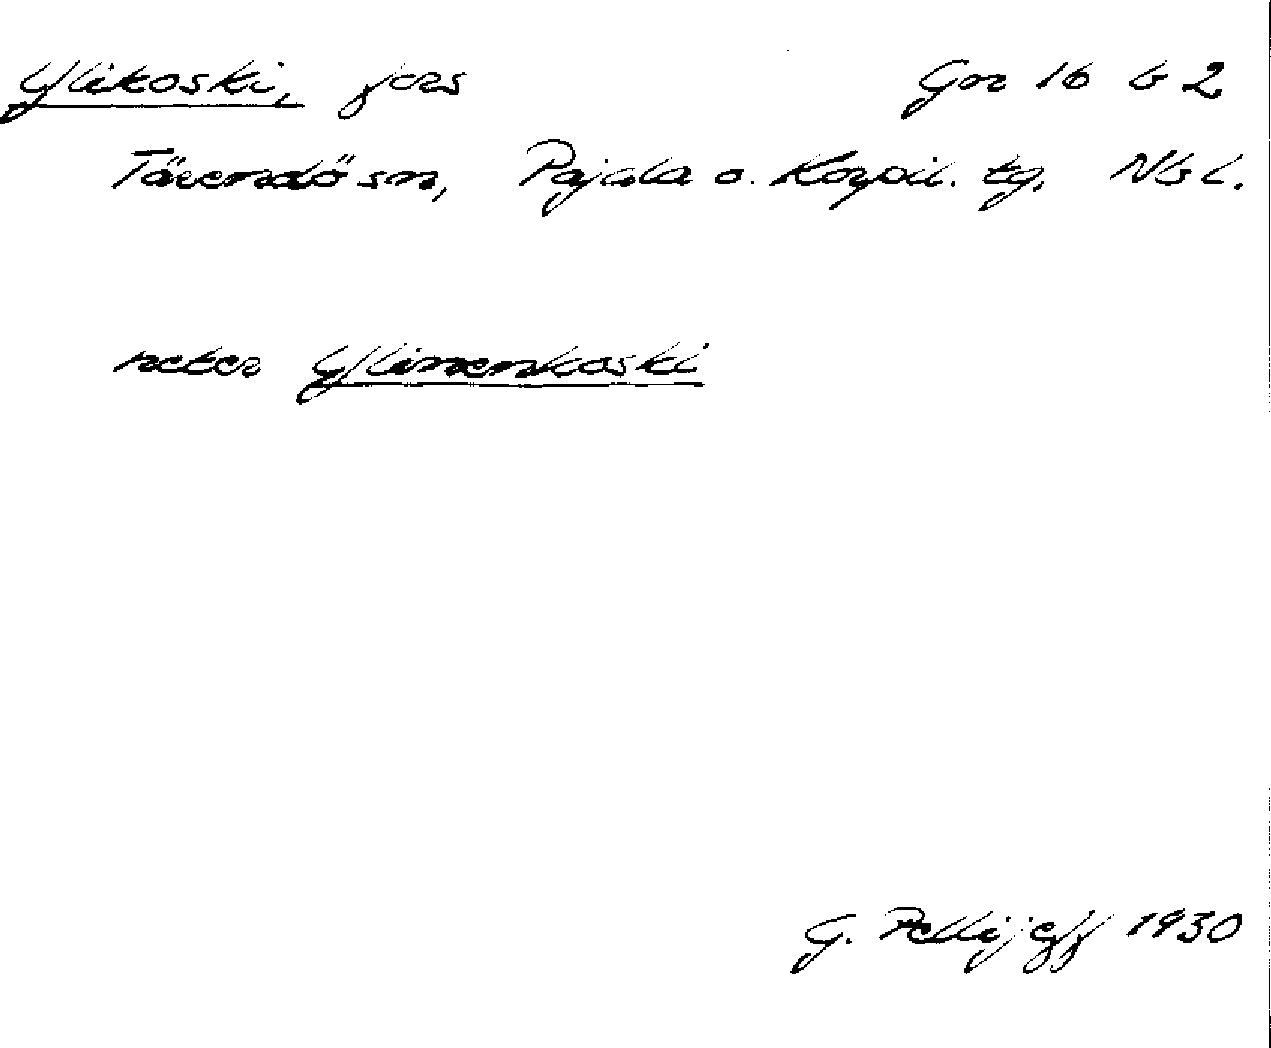 Ylikoski, fors Gr 16 b 2
Tärendö sn, Pajala o. Korpil. tg. Nb l.
heter Ylinenkoski
G. Pellijeff 1930